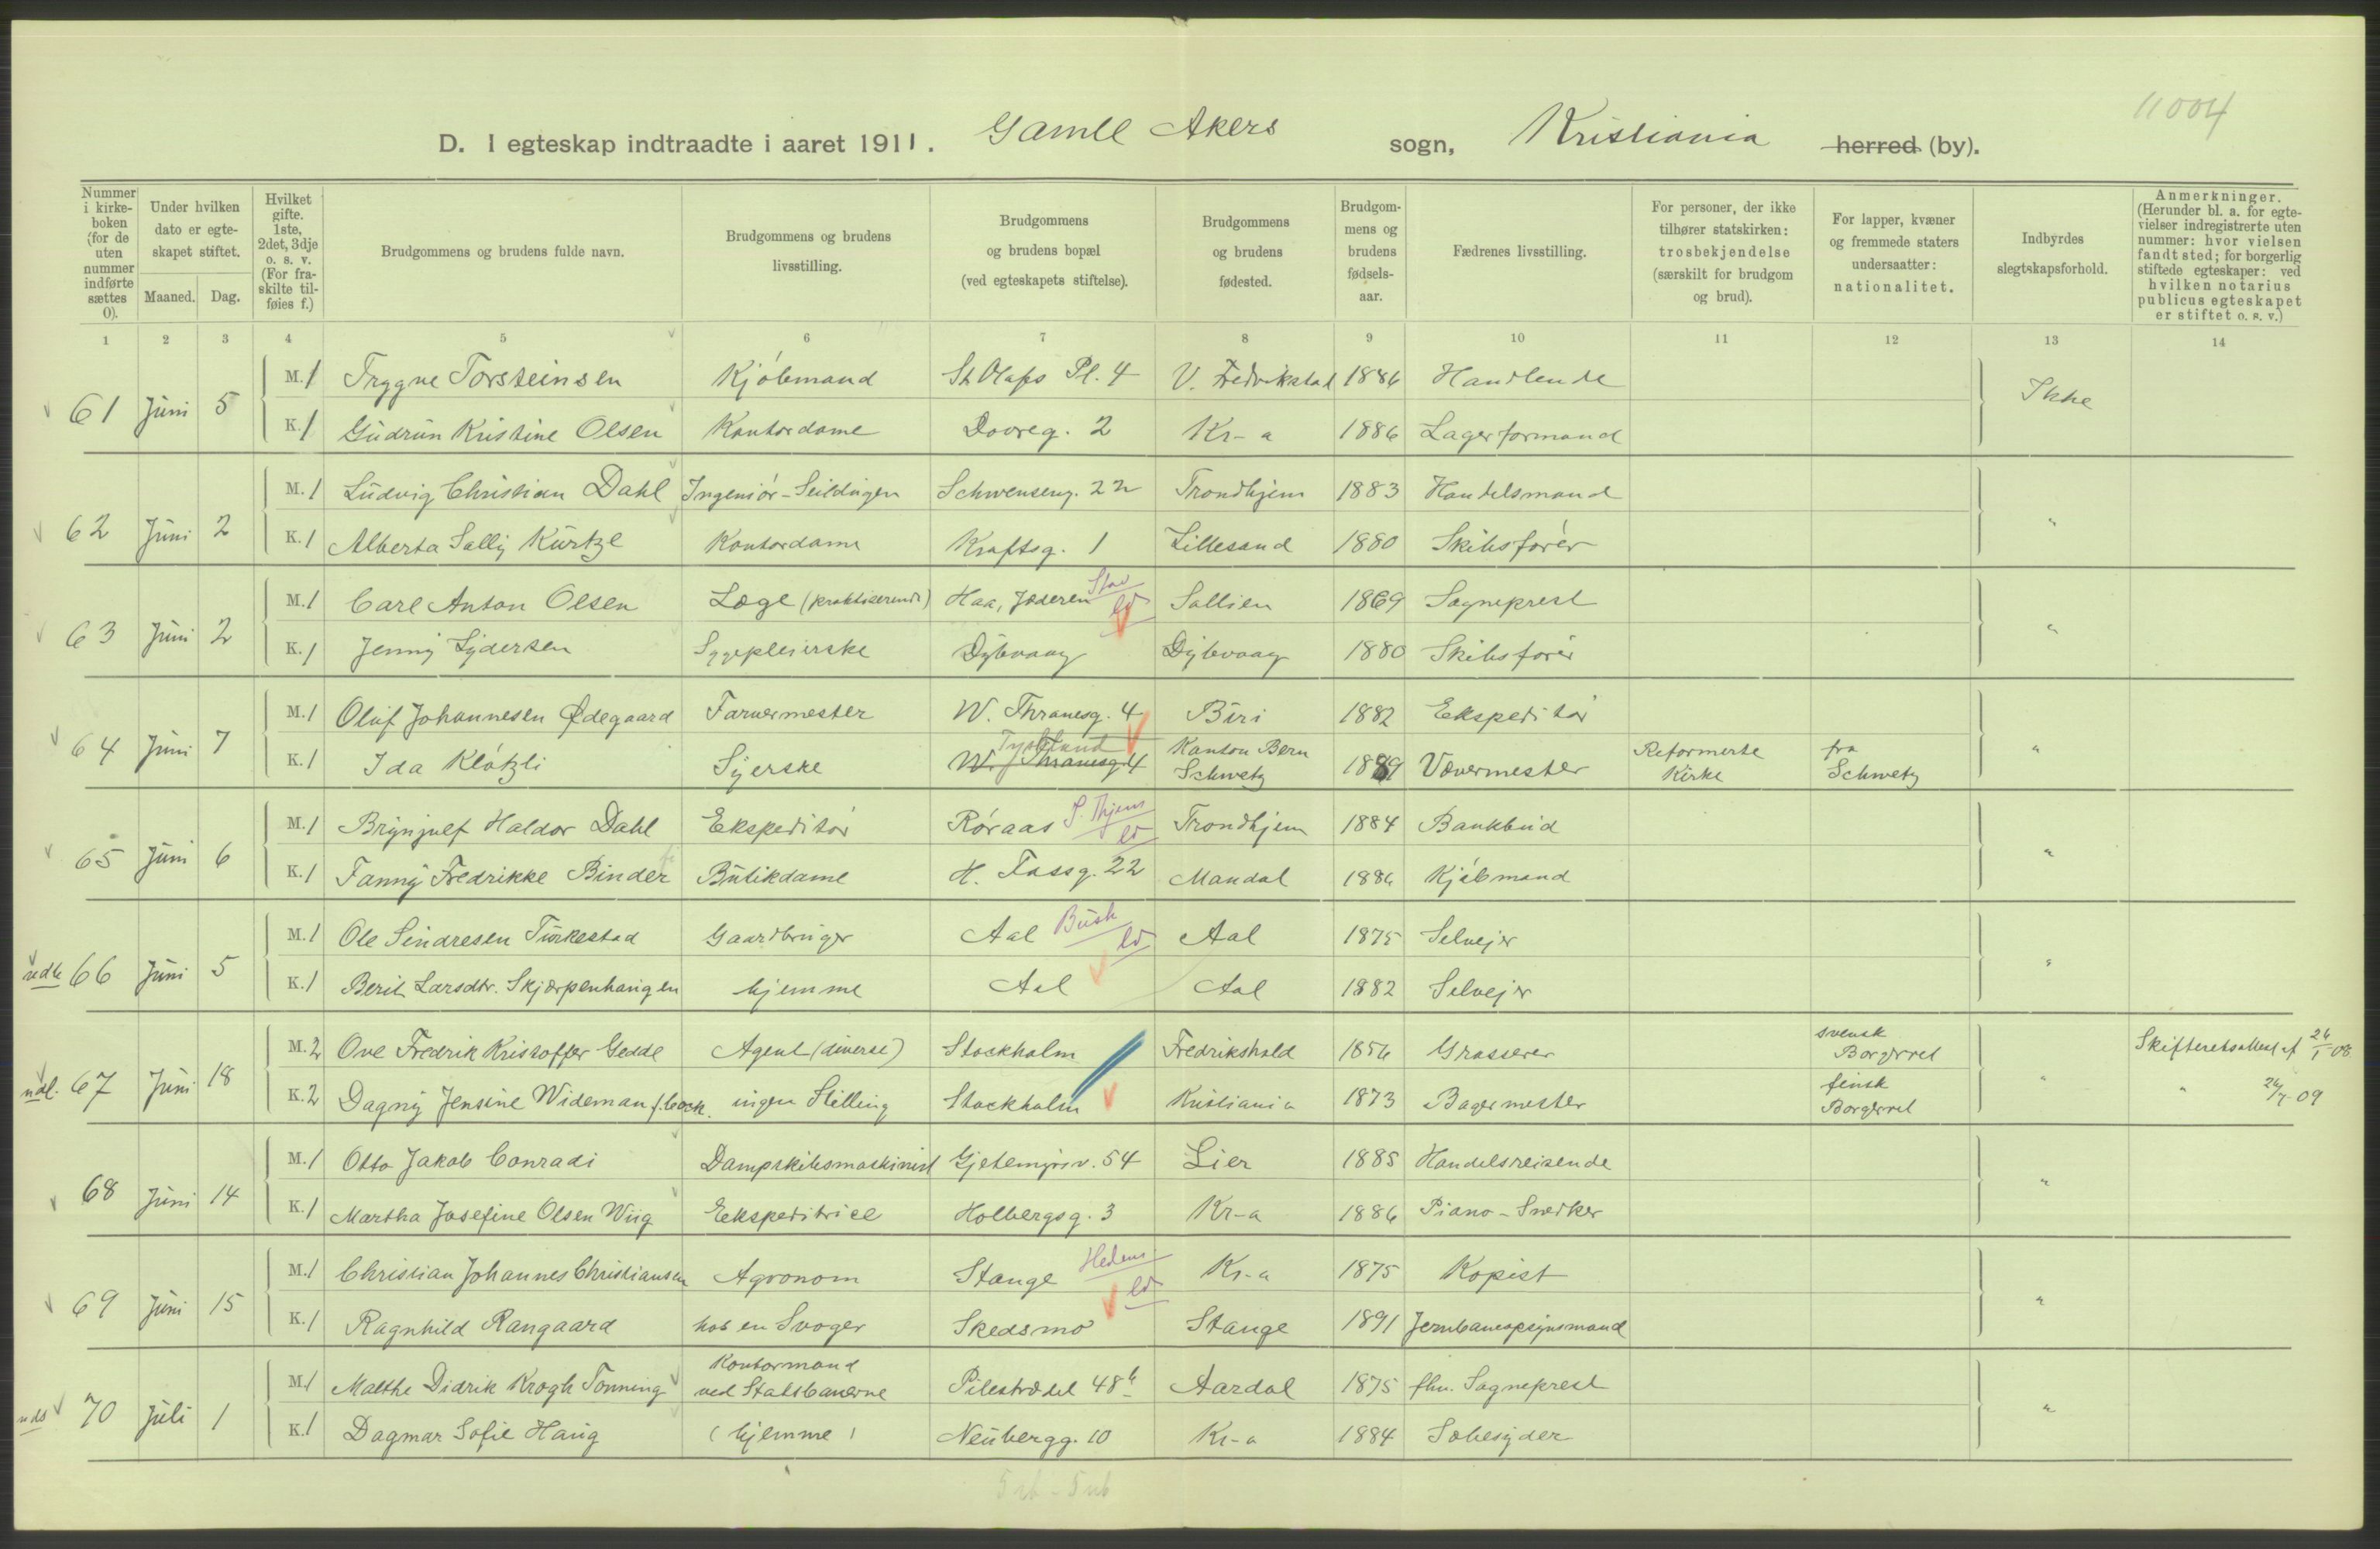 11004
D. I egteskap indtraadte i aaret 1911. Gamle Akers sogn, Kristiania herred (by).
Nummer i kirke-boken (for de uten nummer indførte sættes 0).
Under hvilken dato er egte-skapet stiftet.
Maaned. Dag.
Hvilket gifte. 1ste, 2det, 3dje o. s. v. (For fra-skilte til-føies f.)
Brudgommens og brudens fulde navn.
Brudgommens og brudens livsstilling.
Brudgommens og brudens bopæl (ved egteskapets stiftelse).
Brudgommens og brudens fødested.
Brudgom-mens og brudens fødsels-aar.
Fædrenes livsstilling.
For personer, der ikke tilhører statskirken: trosbekjendelse (særskilt for brudgom og brud).
For lapper, kvæner og fremmede staters undersaatter: nationalitet.
Indbyrdes slegtskapsforhold.
Anmerkninger. (Herunder bl. a. for egte-vielser indregistrerte uten nummer: hvor vielsen fandt sted; for borgerlig stiftede egteskaper: ved hvilken notarius publicus egteskapet er stiftet o. s. v.)
1 2 3 4 5 6 7 8 9 10 11 12 13 14
M. 1 Trygve Torsteinsen Kjøbmand St Olafs Pl. 4 V. Fredrikstad 1886 Handlende
61 Juni 5 Ikke
K. 1 Gudrun Kristine Olsen Kontordame Dovreg. 2 Kr-a 1886 Lagerformand
M. 1 Ludvig Christian Dahl Ingeniör - Schwenseng. 22 Trondhjem 1883 Handelsmand
62 Juni 2 "
K. 1 Alberta Sally Kurtze Kontordame Kraftsg. 1 Lillesand 1880 Skibsfører
M. 1 Carl Anton Olsen Læge (praktiserende) Haa, Jæderen Stav Sallien 1869 Sogneprest
63 Juni 2 "
K. 1 Jenny Lydersen Sygepleierske Dybvaag Dybvaag 1880 Skibsfører
M. 1 Oluf Johannesen Ødegaard Farvermester W. Thranesg. 4 Biri 1882 Ekspeditør
64 Juni 7 "
K. 1 Ida Klötzli Syerske Tyskland W. Thranesg. 4 Kanton Bern Schwetz 1889 Vævermester Reformerte Kirke fra Schwetz
M. 1 Brynjulf Haldor Dahl Ekspeditör Röraas S. Thjem Trondhjem 1884 Bankbud
65 Juni 6 "
K. 1 Fanny Fredrikke Binder Butikdame H. Tassg. 22 Mandal 1886 Kjøbmand
M. 1 Ole Sindresen Turkestad Gaardbruger Aal Busk Aal 1875 Selvejer
66 Juni 5 "
K. 1 Berit Larsdtr. Skjærpenhaugen hjemme Aal Aal 1882 Selvejer
M. 2 Ove Fredrik Kristoffer Gedde Agent (diverse) Stockholm Fredrikshald 1856 Grosserer svensk Borgerret Skifteretsattest af 24/1-08
67 Juni 18 "
K. 2 Dagny Jensine Wideman f. Cock. ingen Stilling Stockholm Kristiania 1873 Bagermester finsk Borgerret " 24/7-09
M. 1 Otto Jakob Conradi Dampskibsmaskinist Gjetemyrsv. 54 Lier 1885 Handelsreisende
68 Juni 14 "
K. 1 Martha Josefine Olsen Wiig Ekspeditrice Holbergsg. 3 Kr-a 1886 Piano-Snedker
M. 1 Christian Johannes Christiansen Agronom Stange Hedem. Kr-a 1875 Kopist
69 Juni 15 "
K. 1 Ragnhild Rangaard hos en Svoger Skedsmo Stange 1891 Jernbaneopsynsmand
M. 1 Malthe Didrik Krogh Tonning Kontormand ved Statsbanerne Pilestrædet 48 b Aardal 1875 fhv. Sogneprest
70 Juli 1 "
K. 1 Dagmar Sofie Haug (hjemme) Neubergg. 10 Kr-a 1884 Sæbesyder